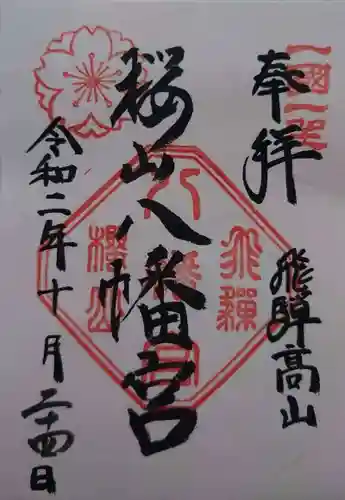 奉拝
飛騨高山
桜山八幡宮
令和二年十月二十四日
飛騨
八幡宮
桜山